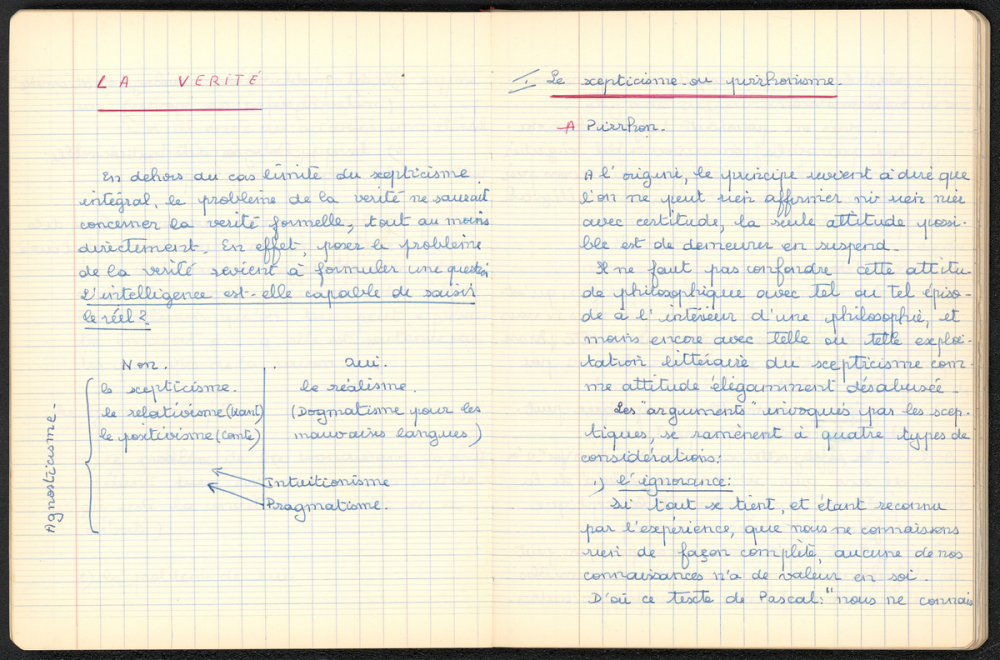 LA VERITÉ
En dehors du cas limité du scepticisme
intégral, le problème de la verité ne saurait
concerner la verité formelle, tout au moins
directement. En effet, poser le problème
de la verité revient à formuler une question
L'intelligence est-elle capable de saisir
le réel?
Non. oui.
Agnosticisme.
le scepticisme.
le relativisme (Kant)
le positivisme (Comte)
le réalisme.
(Dogmatisme pour les
mauvaises langues)
Intuitionisme
Pragmatisme.
1. Le scepticisme ou pirrhonisme.
A Pirrhon.
A l'origine, le principe revient à dire que
l'on ne peut rien affirmer ni rien nier
avec certitude, la seule attitude possi-
ble est de demeurer en suspend.
Il ne faut pas confondre cette attitu
de philosophique avec tel ou tel épiso-
de à l'intérieur d'une philosophie, et
moins encore avec telle ou telle exploi-
tation littéraire du scepticisme com-
me attitude élégamment désabusée.
Les "arguments" invoqués par les scep-
tiques, se ramènent à quatre types de
considérations:
1) l'ignorance:
Si tout se tient, et étant reconnu
par l'expérience, que nous ne connaissons
rien de façon complète, aucune de nos
connaissances n'a de valeur en soi.
D'où ce texte de Pascal: "nous ne connais